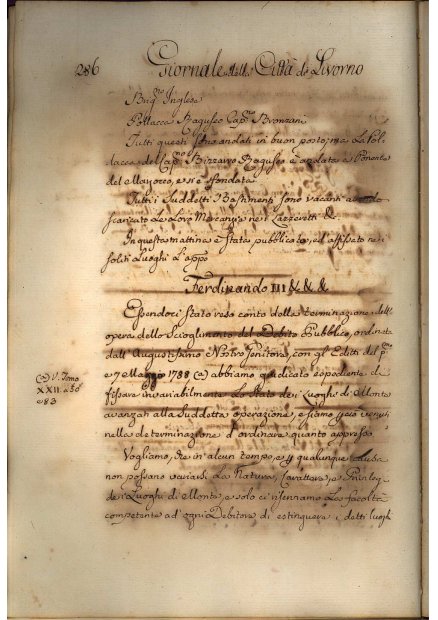 286 Giornale della Città di Livorno
Brig.º Inglese
Pollacca Raguseo Cap.º Bronzani
Tutti questi sono andati in buon posto, ma la Pol-
lacca del Cap.º Bizzarro Raguseo è andata a Ponente
del Mayocco, e si è sfondata
Tutti i Suddetti Bastimenti sono vacanti avendo
scaricato le Loro Mercanzie nei Lazzeretti &.
In questa mattina è stato pubblicato, ed affisso nei
soliti Luoghi l'app.º
Ferdinando III & & &
Essendoci stato reso conto della terminazione dell'
opera dello Scioglimento del Debito Pubblico, ordinata
dall'Augustissimo Nostro Genitore, con gli Editti del p.º
e 7 Maggio 1788 (a) abbiamo giudicato espediente di
fissare invariabilmente lo Stato dei Luoghi di Monte
avanzati alla Suddetta operazione, e siamo perciò venuti
nella determinazione d'ordinare quanto appresso
Vogliamo, che in alcun tempo, e p qualunque causa
non possano variarsi la Natura, Carattere, e Privilegj
dei Luoghi di Monte, e solo ci riserviamo la facoltà
competente ad ogni Debitore di estinguere i detti Luoghi
(a) V. Tomo
XXII a 30
e 83